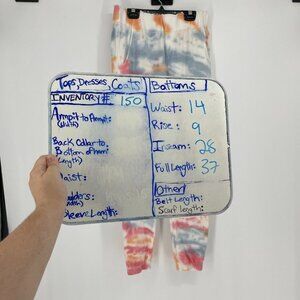 Tops, Dresses, Coats
INVENTORY # 150
Armpit to Armpit:
(Width)
Back Collar to
Bottom of hem
(Length)
Waist:
(width)
Sleeve Length:
Bottoms
Waist: 14
Rise: 9
Inseam: 28
Full Length: 37
Other
Belt Length:
Scarf Length: